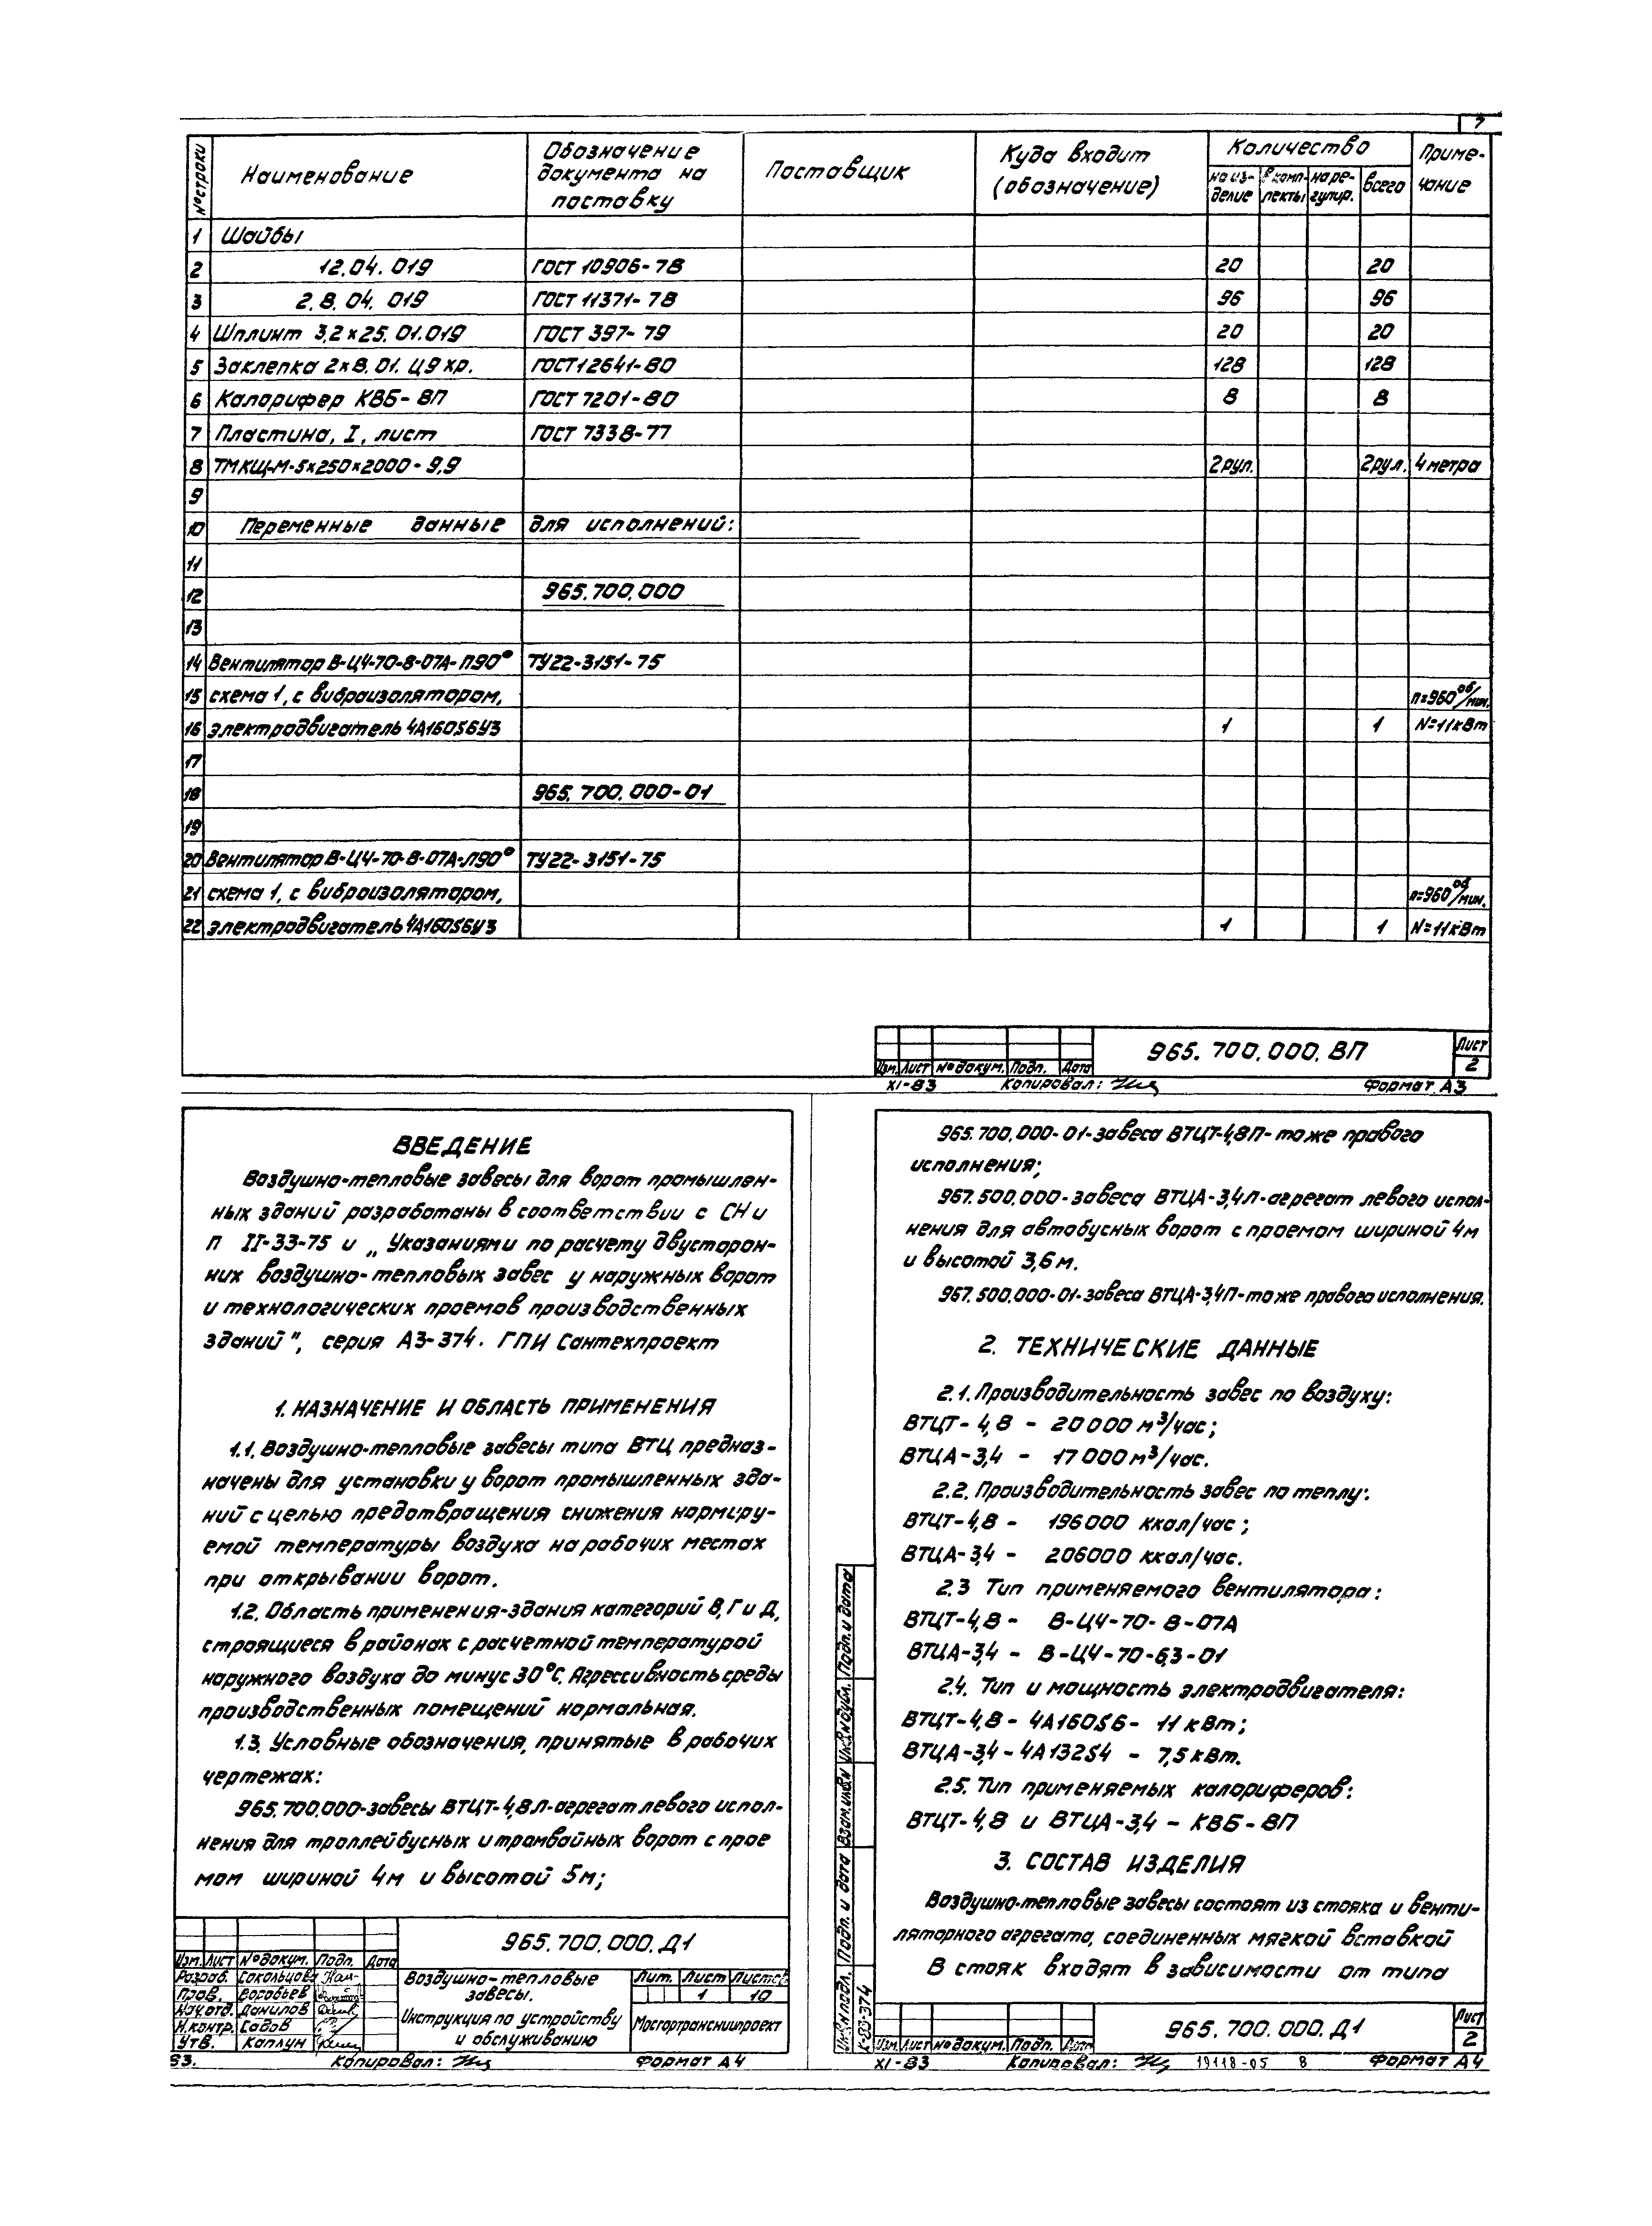 7
№ строки Наименование Обозначение документа на поставку Поставщик Куда входит (обозначение) Количество Приме-чание
на из-делие в комп-лекты на ре-гулир. всего
1 Шайбы
2 12.04.019 ГОСТ 10906-78 20 20
3 2.8.04.019 ГОСТ 11371-78 96 96
4 Шплинт 3,2×25.01.019 ГОСТ 397-79 20 20
5 Заклепка 2×8.01.Ц9хр. ГОСТ 12641-80 128 128
6 Калорифер КВБ-8П ГОСТ 7201-80 8 8
7 Пластина, I, лист ГОСТ 7338-77
8 ТМКЩ-М-5×250×2000-9,9 2рул. 2рул. 4 метра
9
10 Переменные данные для исполнений:
11
12 965.700.000
13
14 Вентилятор В-Ц4-70-8-07А-П90° ТУ22-3151-75
15 схема 1, с виброизолятором, n=960 об/мин.
16 электродвигатель 4А160S6У3 1 1 N=11кВт
17
18 965.700.000-01
19
20 Вентилятор В-Ц4-70-8-07А-Л90° ТУ22-3151-75
21 схема 1, с виброизолятором, n=960 об/мин.
22 электродвигатель 4А160S6У3 1 1 N=11кВт
965.700.000.ВП Лист 2
Изм. Лист № докум. Подп. Дата
XI-83 Копировал: Формат А3
ВВЕДЕНИЕ
Воздушно-тепловые завесы для ворот промышлен-
ных зданий разработаны в соответствии с СНи
П II-33-75 и „Указаниями по расчету двусторон-
них воздушно-тепловых завес у наружных ворот
и технологических проемов производственных
зданий", серия А3-374. ГПИ Сантехпроект
1. НАЗНАЧЕНИЕ И ОБЛАСТЬ ПРИМЕНЕНИЯ
1.1. Воздушно-тепловые завесы типа ВТЦ предназ-
начены для установки у ворот промышленных зда-
ний с целью предотвращения снижения нормиру-
емой температуры воздуха на рабочих местах
при открывании ворот.
1.2. Область применения-здания категорий В, Г и Д,
строящиеся в районах с расчетной температурой
наружного воздуха до минус 30°С. Агрессивность среды
производственных помещений нормальная.
1.3. Условные обозначения, принятые в рабочих
чертежах:
965.700.000-завесы ВТЦТ-4,8Л-агрегат левого испол-
нения для троллейбусных и трамвайных ворот с прое
мом шириной 4м и высотой 5м;
965.700.000.Д1
Изм. Лист № докум. Подп. Дата
Разраб. Сокольцова
Пров. Воробьев
Нач.отд. Данилов
Н.контр. Садов
Утв. Каплун
Воздушно-тепловые
завесы.
Инструкция по устройству
и обслуживанию
Лит. Лист Листов
1 10
Мосгортрансниипроект
83. Копировал: Формат А4
965.700.000-01-завеса ВТЦТ-4,8П-тоже правого
исполнения;
967.500.000-завеса ВТЦА-3,4Л-агрегат левого испол-
нения для автобусных ворот с проемом шириной 4м
и высотой 3,6м.
967.500.000-01-завеса ВТЦА-3,4П-тоже правого исполнения.
2. ТЕХНИЧЕСКИЕ ДАННЫЕ
2.1. Производительность завес по воздуху:
ВТЦТ-4,8 - 20000 м³/час;
ВТЦА-3,4 - 17000 м³/час.
2.2. Производительность завес по теплу:
ВТЦТ-4,8 - 196000 ккал/час;
ВТЦА-3,4 - 206000 ккал/час.
2.3 Тип применяемого вентилятора:
ВТЦТ-4,8 - В-Ц4-70-8-07А
ВТЦА-3,4 - В-Ц4-70-6,3-01
2.4. Тип и мощность электродвигателя:
ВТЦТ-4,8 - 4А160S6 - 11 кВт;
ВТЦА-3,4 - 4А132S4 - 7,5 кВт.
2.5. Тип применяемых калориферов:
ВТЦТ-4,8 и ВТЦА-3,4 - КВБ-8П
3. СОСТАВ ИЗДЕЛИЯ
Воздушно-тепловые завесы состоят из стояка и венти-
ляторного агрегата, соединенных мягкой вставкой
В стояк входят в зависимости от типа
Инв.№подл. Подп. и дата Взам.инв.№ Инв.№дубл. Подп. и дата
К-83-374
965.700.000.Д1 Лист 2
Изм. Лист № докум. Подп. Дата
XI-83 Копировал: 19118-05 8 Формат А4